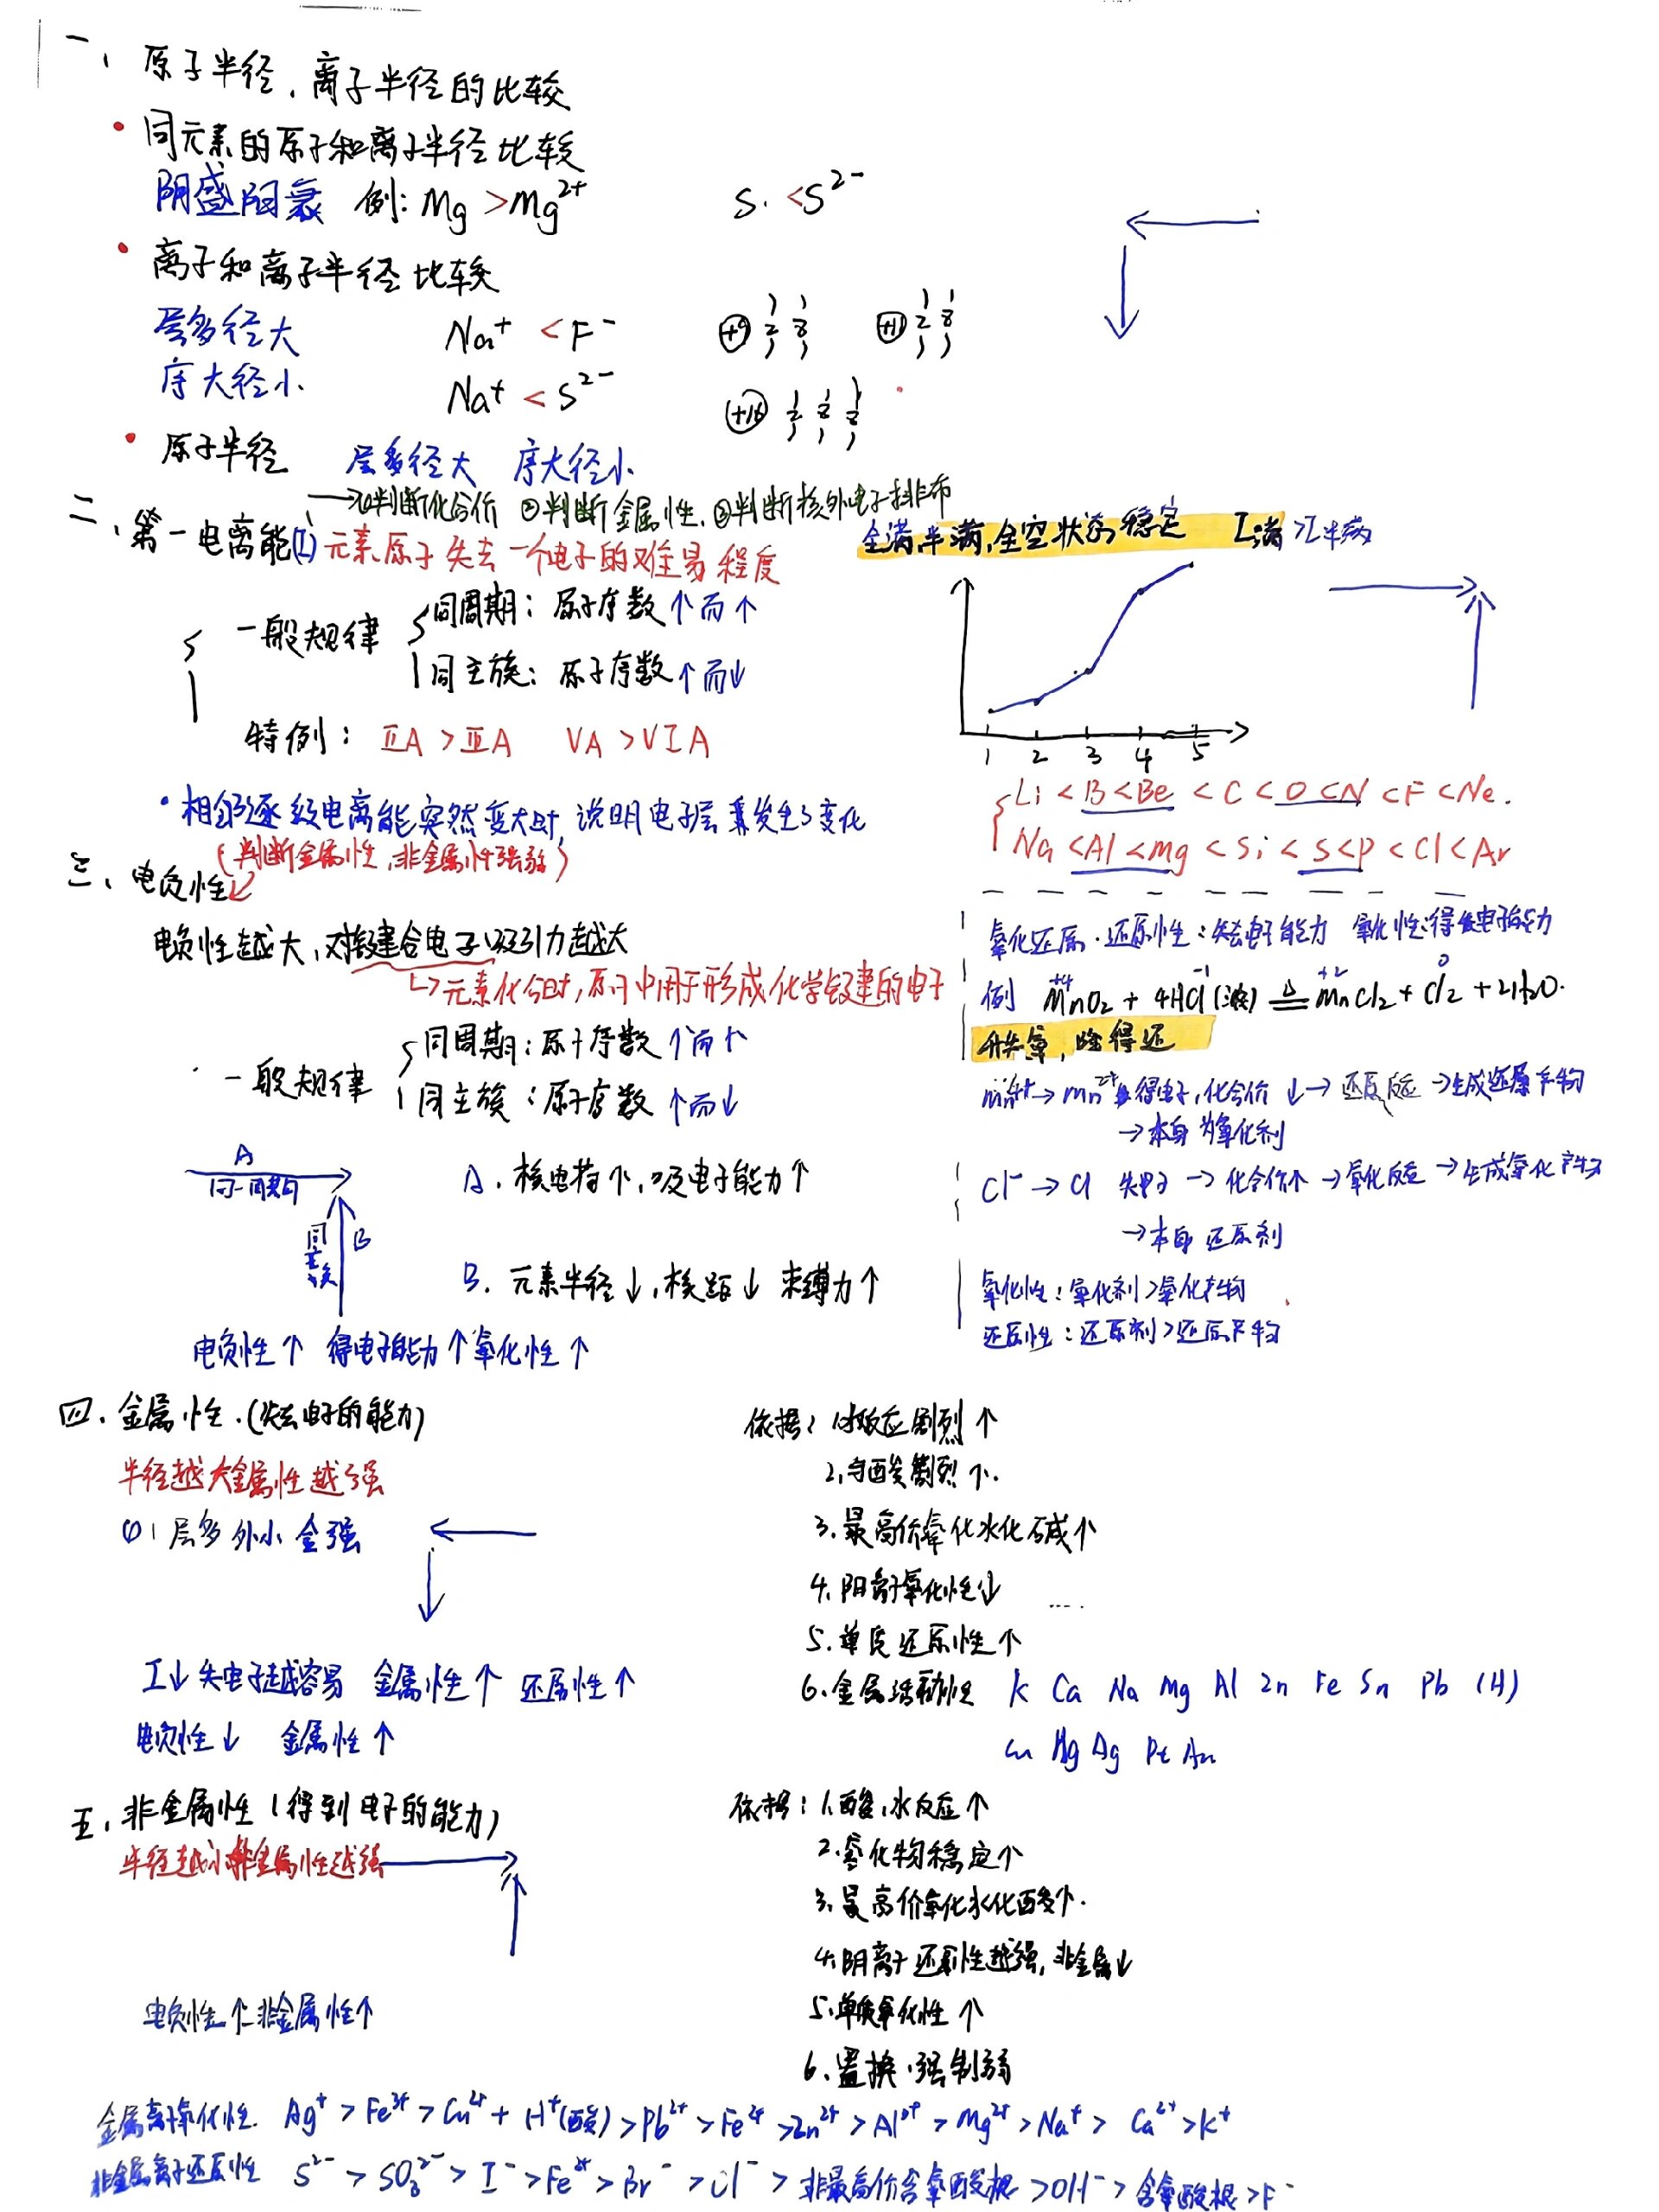 一、原子半径、离子半径的比较
• 同元素的原子和离子半径比较
阴盛阳衰 例: Mg > Mg²⁺ S < S²⁻
• 离子和离子半径比较
层多径大 Na⁺ < F⁻ +9 2 8 +11 2 8
序大径小. Na⁺ < S²⁻ +16 2 8 8
• 原子半径 层多径大 序大径小
→①判断化合价 ②判断金属性. ③判断核外电子排布
二、第一电离能(I) 元素原子失去一个电子的难易程度
全满,半满,全空状态稳定 I满 > I半满
一般规律 同周期: 原子序数↑而↑
同主族: 原子序数↑而↓
特例: ⅡA > ⅢA VA > VIA
1 2 3 4 5
Li < B < Be < C < O < N < F < Ne.
Na < Al < Mg < Si < S < P < Cl < Ar
• 相邻逐级电离能突然变大时, 说明电子层数发生了变化
(判断金属性,非金属性强弱)
三、电负性
电负性越大,对键合电子吸引力越大
↳元素化合时,原子中用于形成化学键的电子
一般规律 同周期: 原子序数↑而↑
同主族: 原子序数↑而↓
A
同一周期
同主族 B
A. 核电荷↑, 吸电子能力↑
B. 元素半径↓, 核距↓ 束缚力↑
电负性↑ 得电子能力↑ 氧化性↑
氧化还原. 还原性: 失去电子能力 氧化性: 得电子能力
+4 -1 +2 0
例 MnO₂ + 4HCl(浓) ≜ MnCl₂ + Cl₂ + 2H₂O.
升失氧, 降得还
Mn⁴⁺ → Mn²⁺ 得电子, 化合价↓ → 还原反应 → 生成还原产物
→ 本身为氧化剂
Cl⁻ → Cl 失电子 → 化合价↑ → 氧化反应 → 生成氧化产物
→ 本身还原剂
氧化性: 氧化剂 > 氧化产物
还原性: 还原剂 > 还原产物
四. 金属性. (失去电子的能力)
半径越大金属性越强
层多外小金强
I↓ 失电子越容易 金属性↑ 还原性↑
电负性↓ 金属性↑
依据: 1.水反应剧烈↑
2.与酸剧烈↑.
3.最高价氧化水化碱↑
4.阳离子氧化性↓ ....
5.单质还原性↑
6.金属活动性 K Ca Na Mg Al Zn Fe Sn Pb (H)
Cu Hg Ag Pt Au
五. 非金属性 (得到电子的能力)
半径越小非金属性越强
电负性↑ 非金属性↑
依据: 1.酸,水反应↑
2.氢化物稳定↑
3.最高价氧化水化酸↑.
4.阴离子还原性越强, 非金属↓
5.单质氧化性↑
6.置换.强制弱
金属离子氧化性. Ag⁺ > Fe³⁺ > Cu²⁺ + H⁺(酸) > Pb²⁺ > Fe²⁺ > Zn²⁺ > Al³⁺ > Mg²⁺ > Na⁺ > Ca²⁺ > K⁺
非金属离子还原性 S²⁻ > SO₃²⁻ > I⁻ > Fe²⁺ > Br⁻ > Cl⁻ > 非最高价含氧酸根 > OH⁻ > 含氧酸根 > F⁻